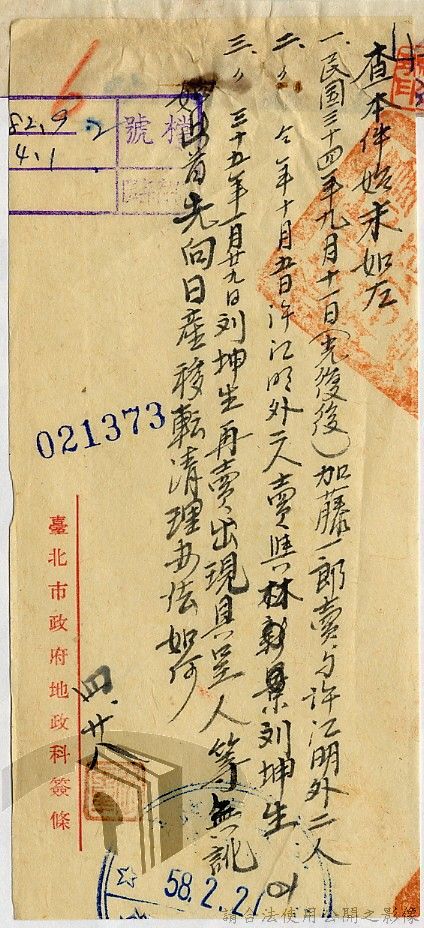 查本件始末如左
一、民国三十四年九月十一日(光復後)加藤一郎賣与許江明外二人
二、〃 仝年十月五日許江明外二人賣與林新景刘坤生
三、〃 三十五年一月廿九日刘坤生再賣出現具呈人等無訛
如出首先向日產移転清理办法如何
四、廿八
臺北市政府地政科簽條
檔號
82.9
2
4.1
021373
58.2.2
請合法使用公開之影像